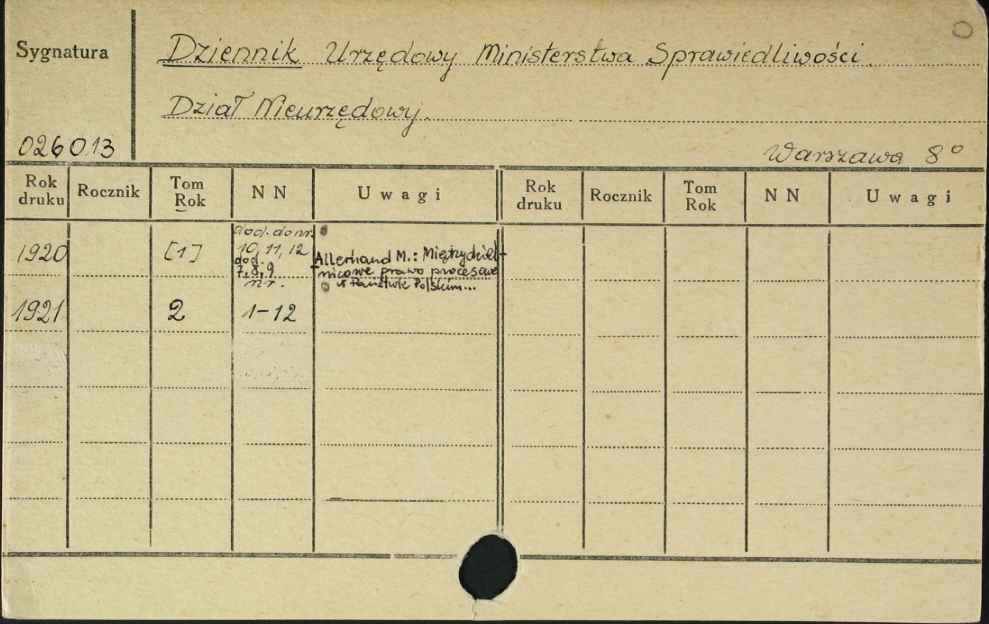 Sygnatura
Dziennik Urzędowy Ministerstwa Sprawiedliwości.
Dział Nieurzędowy.
026013
Warszawa 8°
Rok druku Rocznik Tom Rok N N Uwagi Rok druku Rocznik Tom Rok N N Uwagi
dod. do nr.
1920 [1] 10, 11, 12 Allerhand M.: Międzydziel-
dod.
7, 8, 9 nicowe prawo procesowe
nr. w Państwie Polskim...
1921 2 1-12